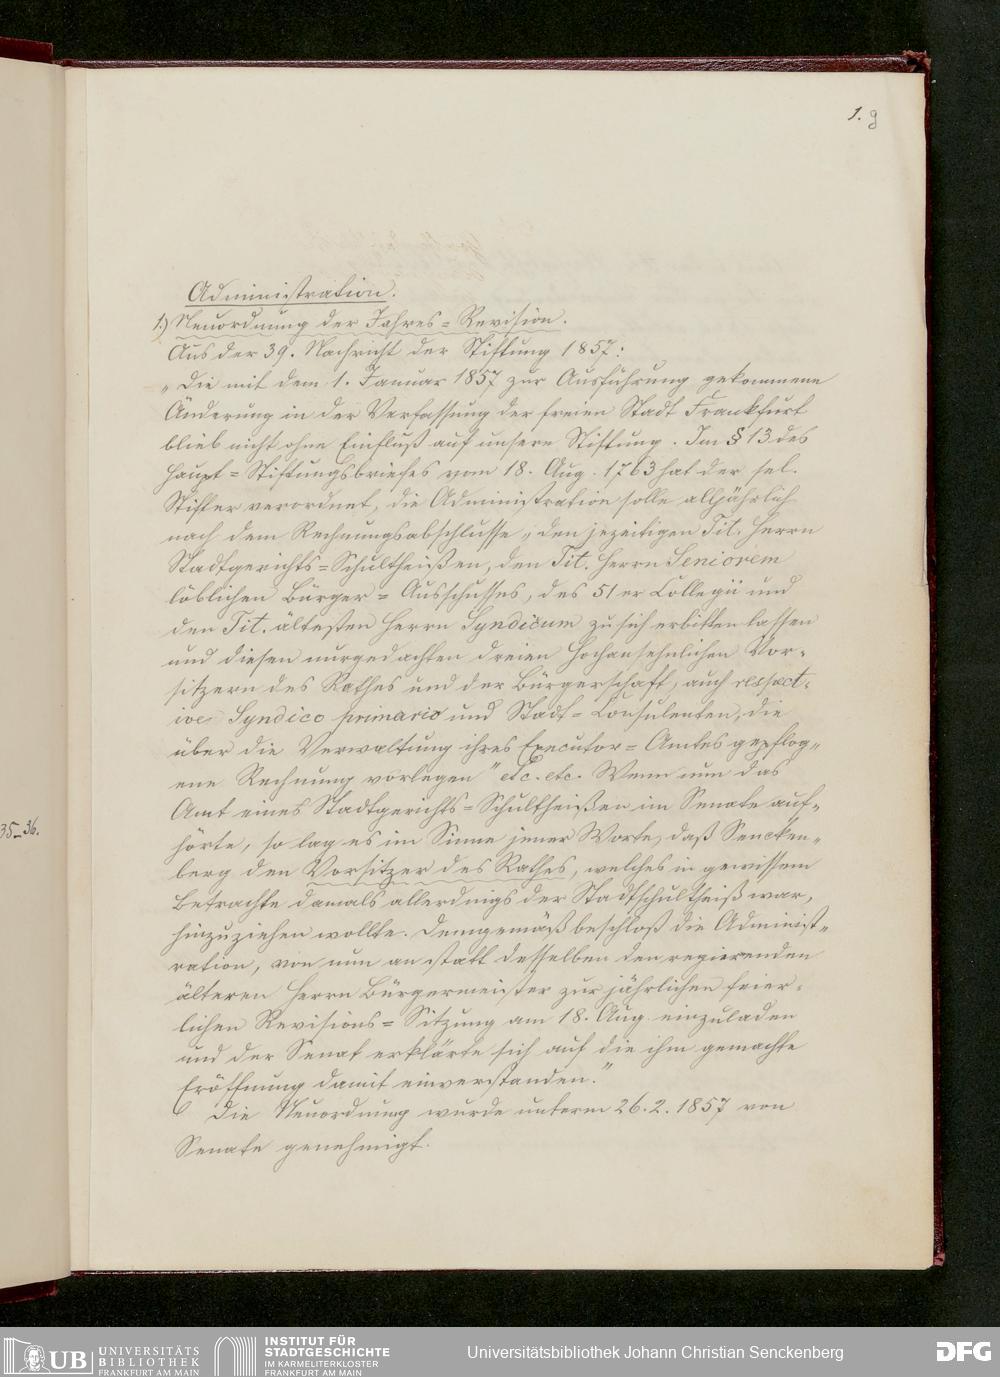 1. g
Administration.
1.) Neuordnung der Jahres=Revision.
Aus der 39. Nachricht der Stiftung 1857:
„Die mit dem 1. Januar 1857 zur Ausführung gekommene
Änderung in der Verfassung der freien Stadt Frankfurt
blieb nicht ohne Einfluß auf unsere Stiftung. Im § 13 des
Haupt=Stiftungsbriefes vom 18. Aug. 1763 hat der sel.
Stifter verordnet, die Administration solle alljährlich
nach dem Rechnungsabschlusse „den jezeitigen Tit. Herrn
Stadtgerichts=Schultheißen, den Tit. Herrn Seniorem
löblichen Bürger=Ausschusses, des 51er Collegii und
den Tit. ältesten Herrn Syndicum zu sich erbitten lassen
und diesen nurgedachten dreien Hochansehnlichen Vor-
sitzern des Rathes und der Bürgerschaft, auch respect-
ive Syndico primario und Stadt=Consulenten, die
über die Verwaltung ihres Executor=Amtes gepflog„
ene Rechnung vorlegen" etc. etc. Wenn nun das
Amt eines Stadtgerichts=Schultheißen im Senate auf„
hörte, so lag es im Sinne jener Worte, daß Sencken„
berg den Vorsitzer des Rathes, welches in gewissem
Betrachte damals allerdings der Stadtschultheiß war,
hinzuziehen wollte. Demgemäß beschloß die Administ„
ration, von nun an statt desselben den regierenden
älteren Herrn Bürgermeister zur jährlichen feier-
lichen Revisions=Sitzung am 18. Aug. einzuladen
und der Senat erklärte sich auf die ihm gemachte
Eröffnung damit einverstanden."
Die Neuordnung wurde unterm 26.2.1857 von
Senate genehmigt.
35-36.
UB UNIVERSITÄTS
BIBLIOTHEK
FRANKFURT AM MAIN
INSTITUT FÜR
STADTGESCHICHTE
IM KARMELITERKLOSTER
FRANKFURT AM MAIN
Universitätsbibliothek Johann Christian Senckenberg
DFG